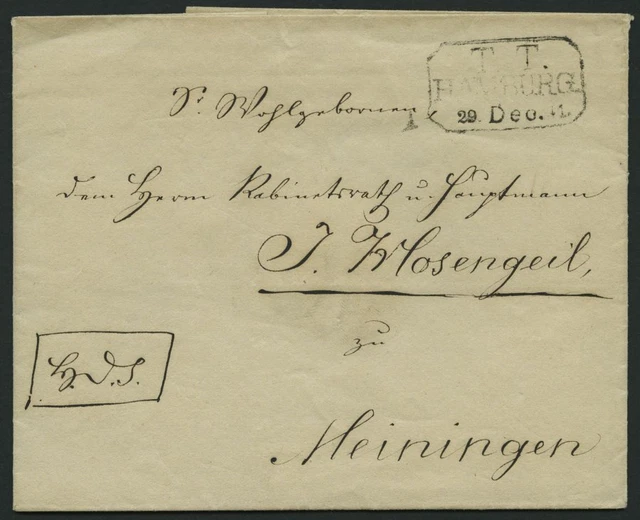 T. T.
HAMBURG.
29. Dec. 41.
Sr. Wohlgebornen
dem Herrn Kabinetsrath u. Hauptmann
J. Mosengeil,
zu
H.D.S.
Meiningen